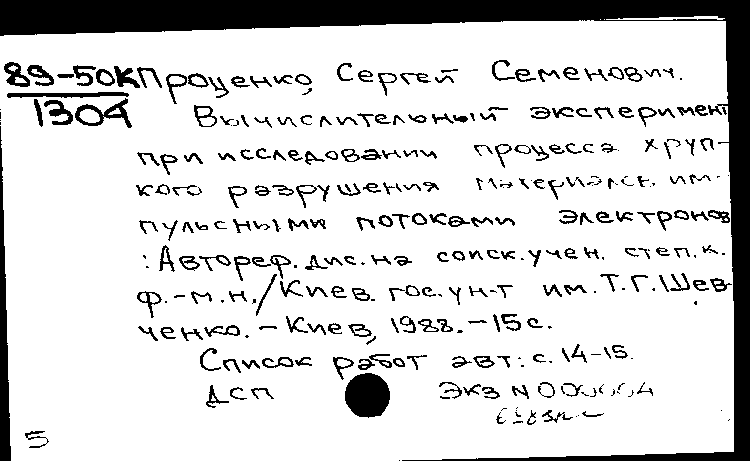 89-50К Проценко, Сергей Семенович.
1304 Вычислительный эксперимент
при исследовании процесса хруп-
кого разрушения материалов им-
пульсными потоками электронов
: Автореф. дис. на соиск. учен. степ. к.
ф.-м.н. / Киев. гос. ун-т им. Т.Г. Шев-
ченко. - Киев, 1988. - 15 с.
Список работ авт: с. 14-15.
ДСП Экз N
5